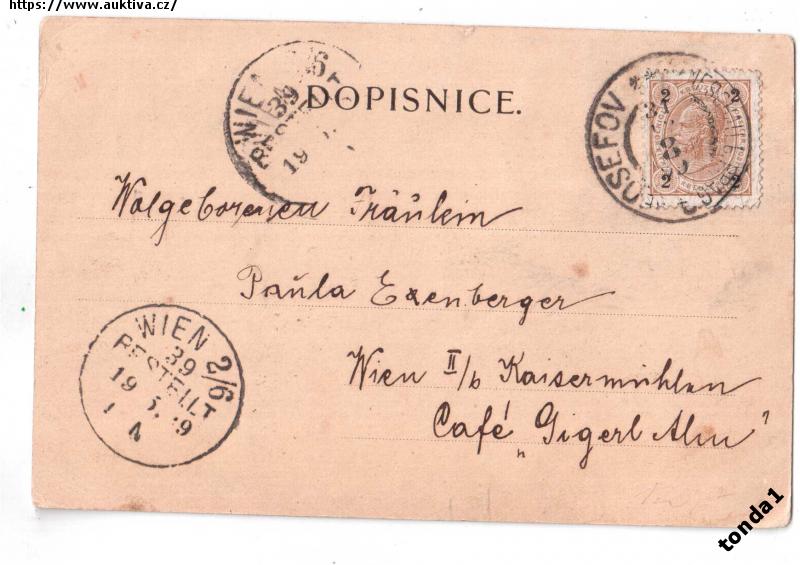 https://www.auktiva.cz/
DOPISNICE.
WIEN 2/6
39
BESTELLT
19
JOSEFOV
2 2
2 2
Wolgeborenen Fräulein
Paula Exenberger
Wien II/b Kaisermühlen
Café „Gigerl Alm"
WIEN 2/6
39
BESTELLT
19 5. 9
1 A
tonda1